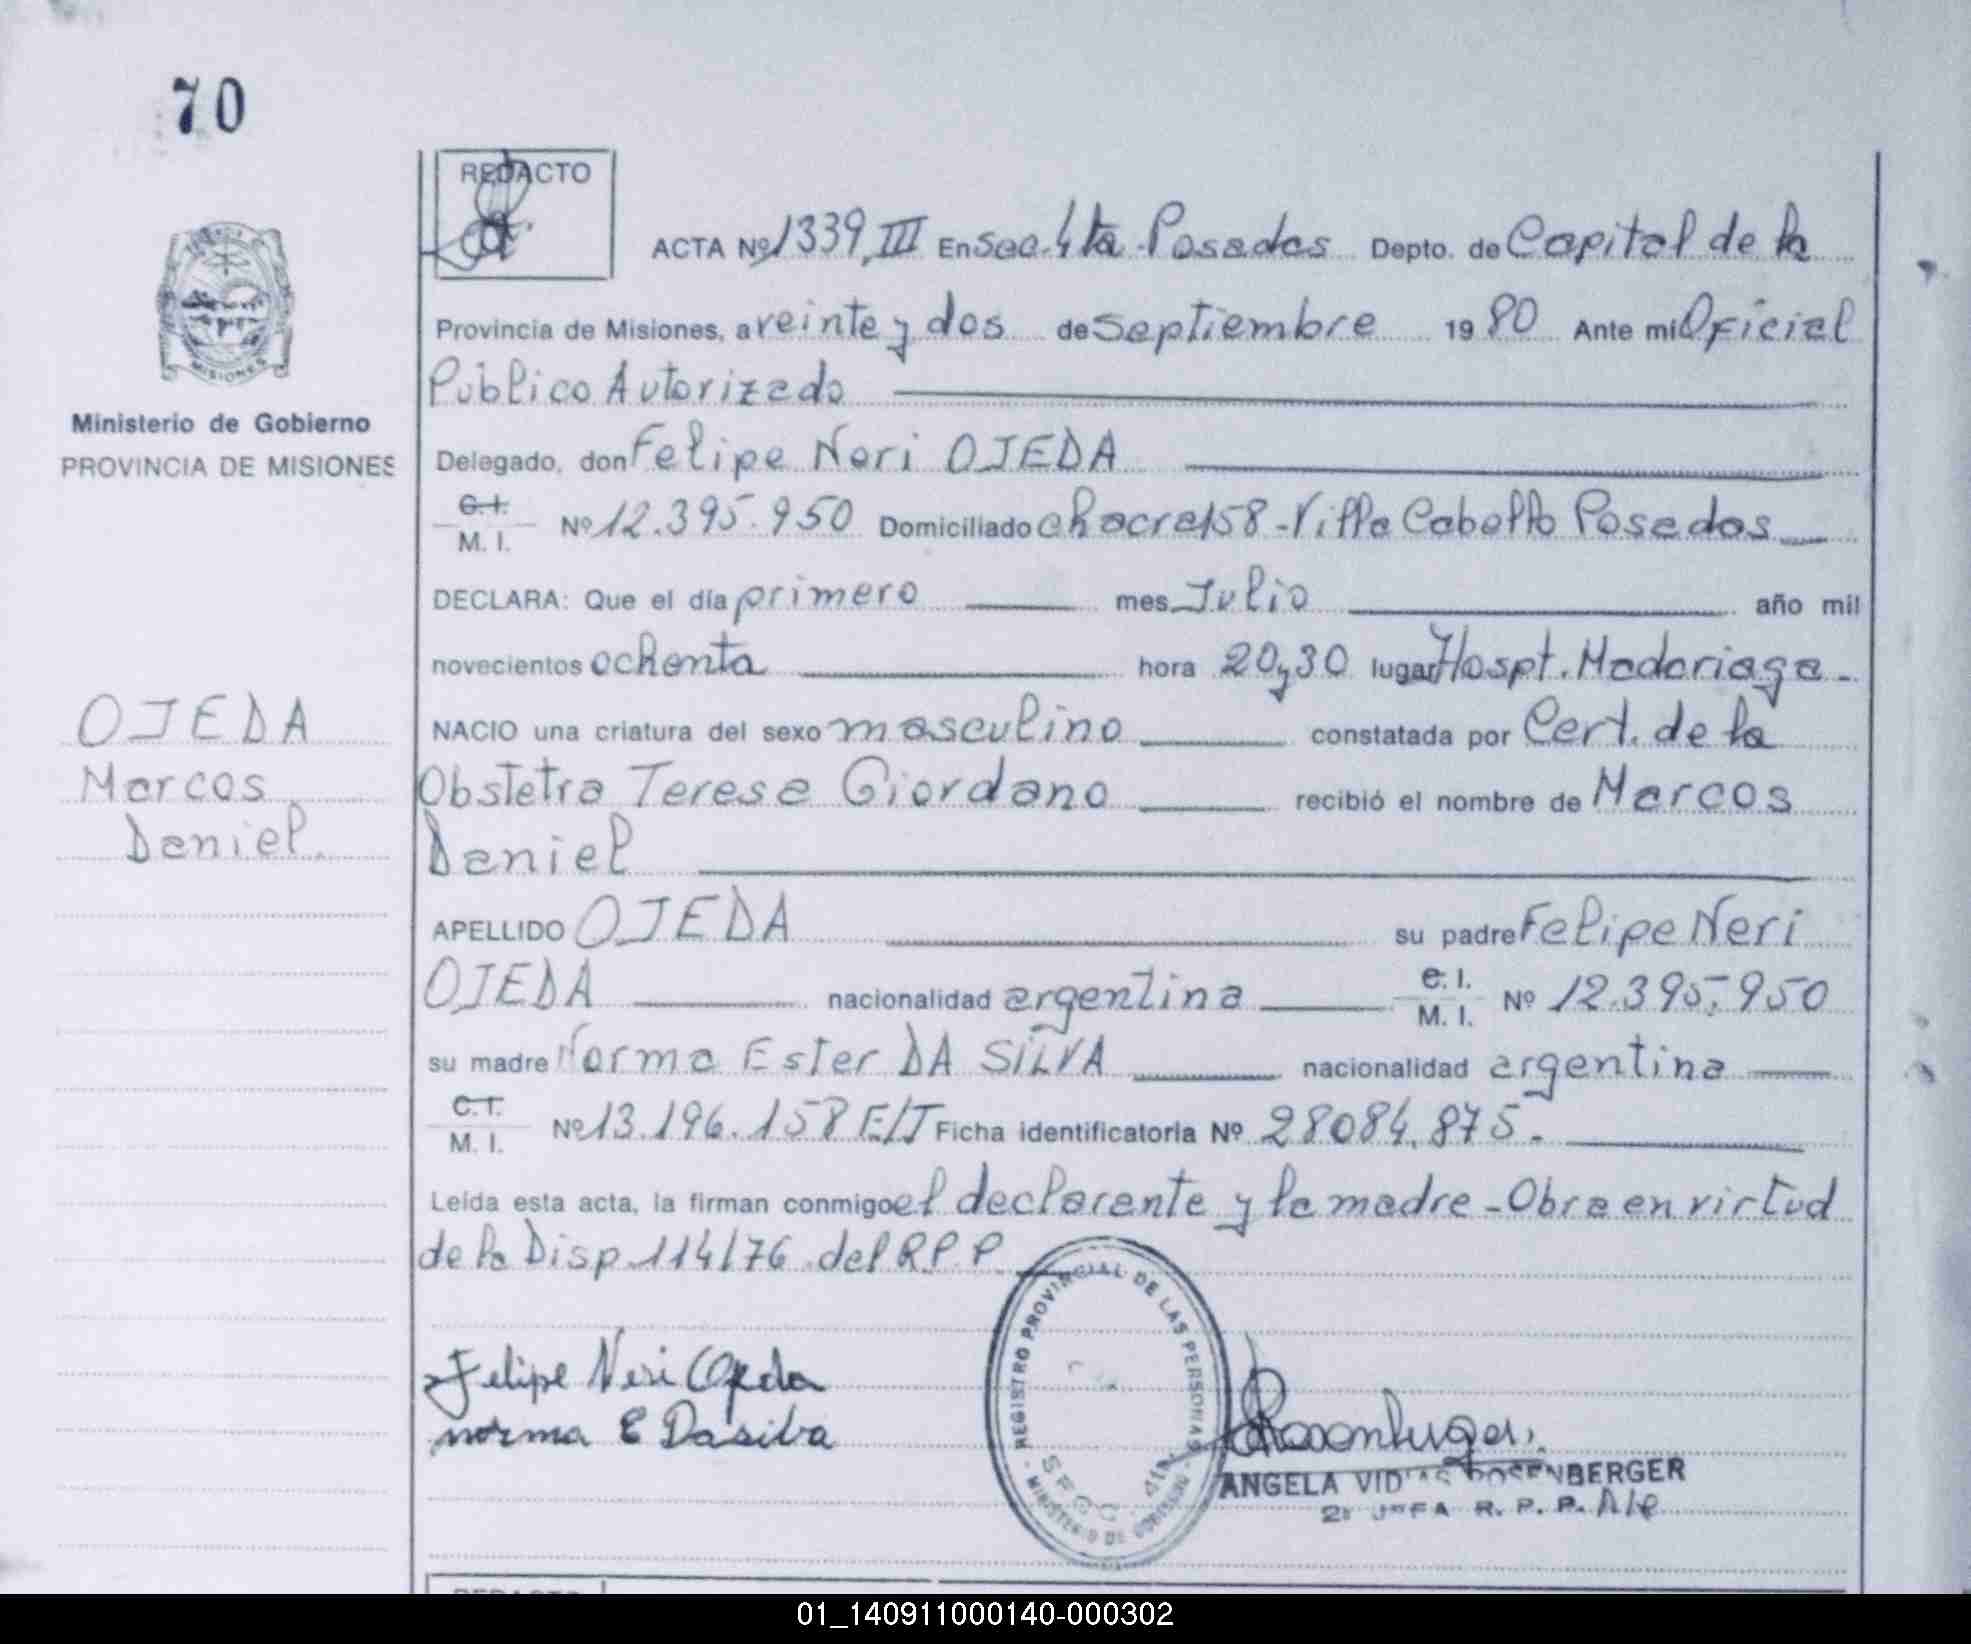 70
REDACTO
ACTA Nº 1339, III En Sec. 4ta Posadas Depto. de Capital de la
Provincia de Misiones, a veinte y dos de Septiembre 1980 Ante mi Oficial
Público Autorizado
Ministerio de Gobierno
PROVINCIA DE MISIONES
Delegado, don Felipe Neri OJEDA
C.I. M. I. Nº 12.395.950 Domiciliado chacra 158 - Villa Cabello Posadas
DECLARA: Que el día primero mes Julio año mil
novecientos ochenta hora 20,30 lugar Hospt. Madariaga -
OJEDA
Marcos
Daniel.
NACIO una criatura del sexo masculino constatada por Cert. de la
Obstetra Teresa Giordano recibió el nombre de Marcos
Daniel
APELLIDO OJEDA su padre Felipe Neri
OJEDA nacionalidad argentina C.I. M. I. Nº 12.395.950
su madre Norma Ester DA SILVA nacionalidad argentina
C.I. M. I. Nº 13.196.158 E/T Ficha identificatoria Nº 28084.875.-
Leída esta acta, la firman conmigo el declarante y la madre - Obra en virtud
de la Disp. 114/76 del R.P.P.
REGISTRO PROVINCIAL DE LAS PERSONAS
MINISTERIO DE GOBIERNO
SECC. 4ta.
Felipe Neri Ojeda
norma E Dasilva
ANGELA VIDAS ROSENBERGER
2ª JEFA R. P. P.
REDACTO
01_140911000140-000302